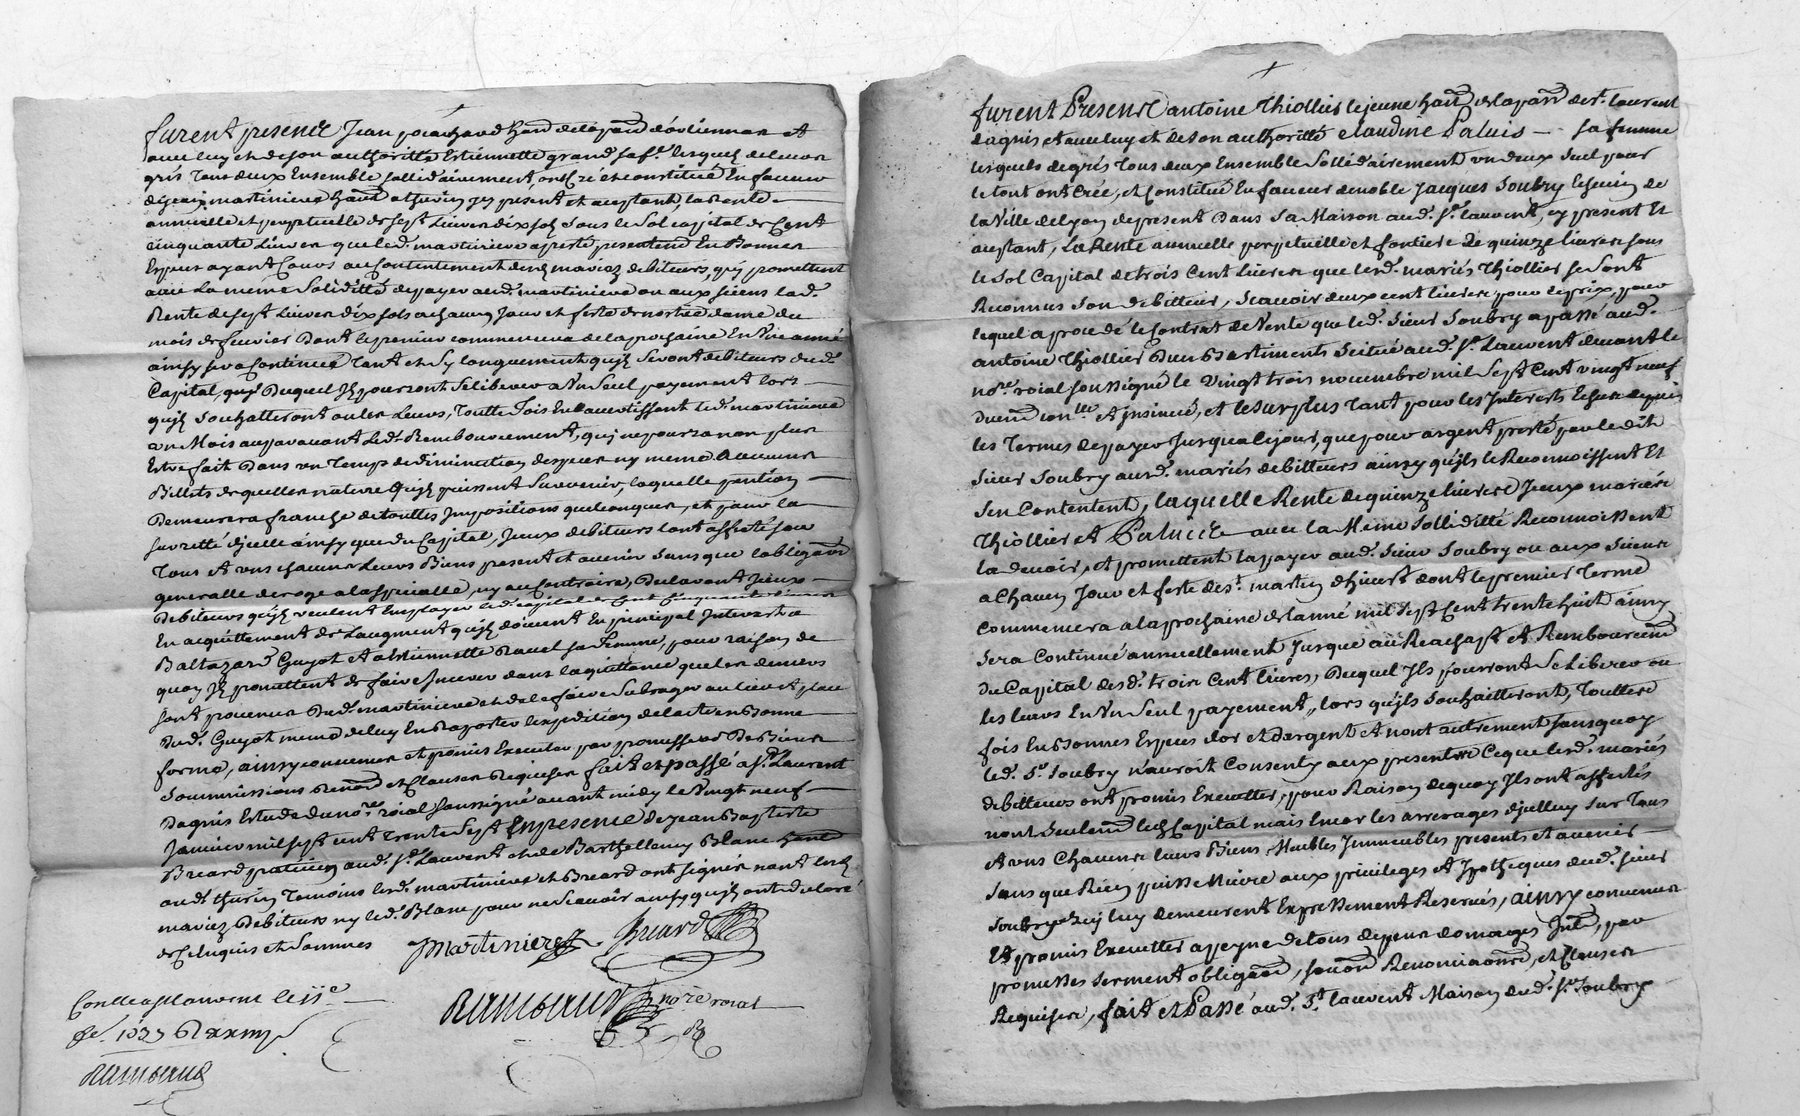 furent presents Jean poinchard hant de la parr d'orliennas et
avec luy et de son authoritté Estiennette grand sa fe. lesquels de leurs
gris tous deux Ensemble sollidairement, ont créé et constitué En faveur
de jean martiniere hant a thurin icy present et aceptant, la rente
annuelle et perpetuelle de sept Livres dix sols sous le Sol capital de Cent
cinquante Livres que led. martiniere a presté presentemt En Bonnes
Especes ayant Cours au Contentement desd mariez debiteurs, quy promettent
avec La méme Solidditté de payer aud. martiniere ou aux siens lad.
Rente de sept Livres dix sols a chacun Jour et feste de nostre dame du
mois de fevrier Dont le premier commencera de la prochaine En Une année
ainsy sera Continué Tant et Sy longuement qu'ils seront debiteurs dud.
Capital, Duquel Ils pourront Se liberer a Un Seul payement lors
qu'ils Souhaitteront ou les Leurs, Toutte fois En L'avertissant led. martiniere
un Mois auparavant Led. Remboursement, quy ne pourra non plus
Estre fait Dans un Temps de diminution d'especes ny meme En aucuns
Billets de quelles nature Qu'ils puissent Survenir, laquelle pention
Demeurera franche de touttes Impositions quelconques, et pour la
surretté d'icelle ainsy que du Capital, Iceux debiteurs l'ont affecté sur
Tous Et uns chacuns Leurs Biens present et avenir sans que l'obligaon
generalle deroge a la specialle, ny au Contraire, Declarant Iceux
Debiteurs qu'ils veulent Employer led capital de Cent Cinquante Livres
En acquittement de L'augment qu'ils doivent En principal Interests a
Baltazard Guyot Et a Estiennette Ravel sa Femme, pour raison de
quoy Ils promettent de faire Inserer dans la quittance que les deniers
sont provenus Dud. martiniere et de le faire Subroger au lieu et place
Dud. Guyot meme de luy En raporter l'expedition de lacte en Bonne
forme, ainsy convenu et promis Executer par promesses Des Biens
Soumissions Renon et Clauses Requises fait et passé a St. Laurent
Dagnis Estude du nore. roial soussigné avant midy le Vingt neuf
Janvier mil sept cent Trente Sept En presence de jean Baptiste
Breard praticien aud. St. Laurent et de Barthellemy Blanc hant
aud. thurin Temoins led. martiniere et Breard ont signés nont lesd
mariez Debiteurs ny led. Blanc pour ne Scavoir ainsy qu'ils ont declaré
de Ce Enquis et Sommés
J martiniere Breard
Ramoud nore roial
Conlle a St Laurent le 11e
fe. 1737
Ramoud
furent Presents antoine Thiollier le jeune hant de la parr de st. laurent
dagnis et avec luy et de son authoritté claudine Paluis — sa femme
lesquels de grés tous deux Ensemble Sollidairement un deux seul pour
le tout ont Crée, et Constitué En faveur de noble Jacques Soubry Eschevin de
la Ville de Lyon de present Dans Sa Maison aud. st. laurent, icy present Et
aceptant, La Rente annuelle perpetuelle et fontiere de quinze livres sous
le Sol Capital de trois Cent Livres que lesd. mariés Thiollier se sont
Reconnus Son debitteur, Scavoir deux cent livres pour le prix, pour
lequel a procedé le Contrat de Vente que led. Sieur Soubry a passé aud.
antoine Thiollier D'un Bastiments Scitué aud. St. Laurent devant le
nore. roial soussigné le Vingt trois novembre mil Sept Cent vingt neuf
Duemt conllé Et Insinué, et le surplus Tant pour les Interests Echus depuis
les Termes de payer Jusqua Ce jour, que pour argent presté par le dit
Sieur Soubry ausd. mariés debitteurs ainsy qu'ils le Reconnoissent Et
Sen Contentent, laquelle Rente de quinze livres Iceux mariés
Thiollier et Paluis avec la Méme Solliditté Reconnoissent
la devoir, et promettent la payer aud. Sieur Soubry ou aux Siens
a Chacun Jour et feste de st. martin d'hivert dont le premier Terme
commencera a la prochaine de lanné mil sept Cent trente huit ainsy
Sera Continué annuellement Jusque au Reachapt Et Remboursemt
Du Capital desd. trois Cent livres, Duquel Ils pourront Se Liberer ou
les leurs En Un Seul payement, lors qu'ils Souhaitteront, Touttes
fois En Bonnes Especes d'or et d'argent Et nont autrement sans quoy
led. Sr. Soubry n'auroit Consenty aux presentes Ce que lesd. mariés
debitteurs ont promis Executter, pour Raison de quoy Ils ont affectés
nont Seulemt led Capital mais Encor les arrerages d'icelluy sur Tous
Et uns Chacuns leurs Biens Meubles Immeubles presents et avenir
Sans que Rien puisse Nuire aux privileges Et Ipotheques dud. Sieur
Soubry quy luy demeurent Expressement Reservés, ainsy convenus
Et promis Executter a peyne de tous depens domages Int, par
promesses serment obligaon, soumon Renonciaons, et Clauses
Requises, fait et Passé aud. St. laurent Maison dud. Sr. Soubry